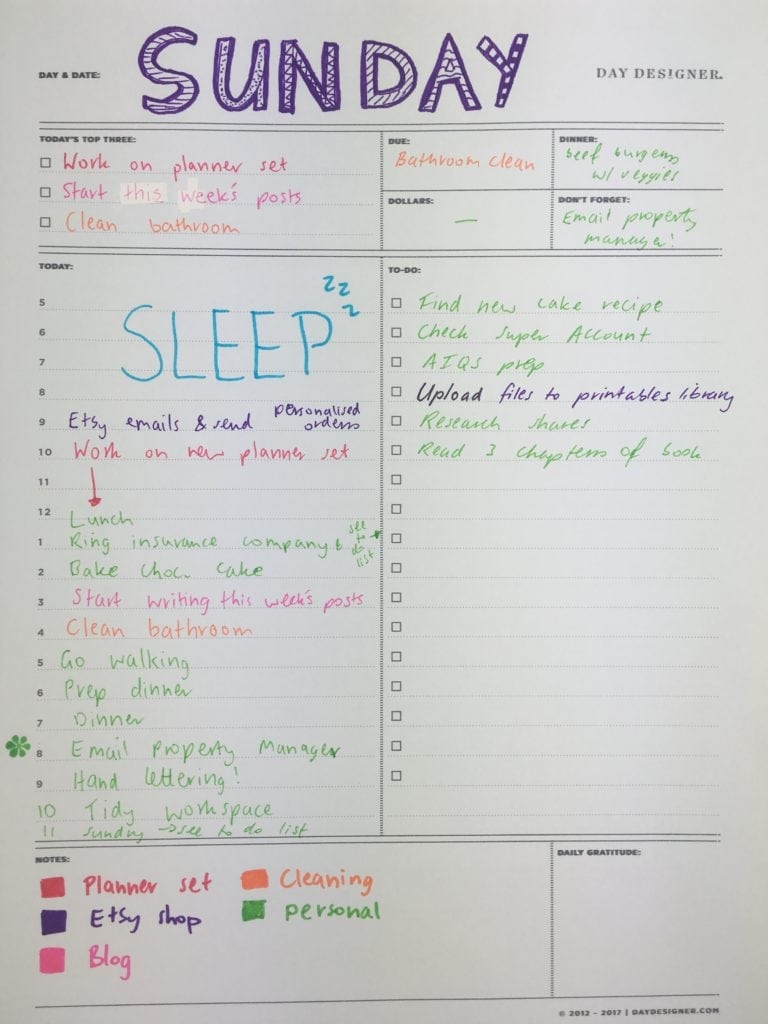 SUNDAY
DAY & DATE:
DAY DESIGNER.
TODAY'S TOP THREE:
Work on planner set
Start this week's posts
Clean bathroom
DUE:
Bathroom clean
DINNER:
beef burgers
w/ veggies
DOLLARS:
—
DON'T FORGET:
Email property
manager!
TODAY:
zzz
5
6 SLEEP
7
8
9 Etsy emails & send personalised orders
10 Work on new planner set
11
12 Lunch
1 Ring insurance company & see to do list
2 Bake choc. cake
3 Start writing this week's posts
4 Clean bathroom
5 Go walking
6 Prep dinner
7 Dinner
8 Email Property Manager
9 Hand lettering!
10 Tidy workspace
11 sundry → see to do list
TO-DO:
Find new cake recipe
Check Super Account
AIQS prep
Upload files to printables library
Research shares
Read 3 chapters of book
NOTES:
Planner set
Etsy shop
Blog
Cleaning
personal
DAILY GRATITUDE:
© 2012 - 2017 | DAYDESIGNER.COM